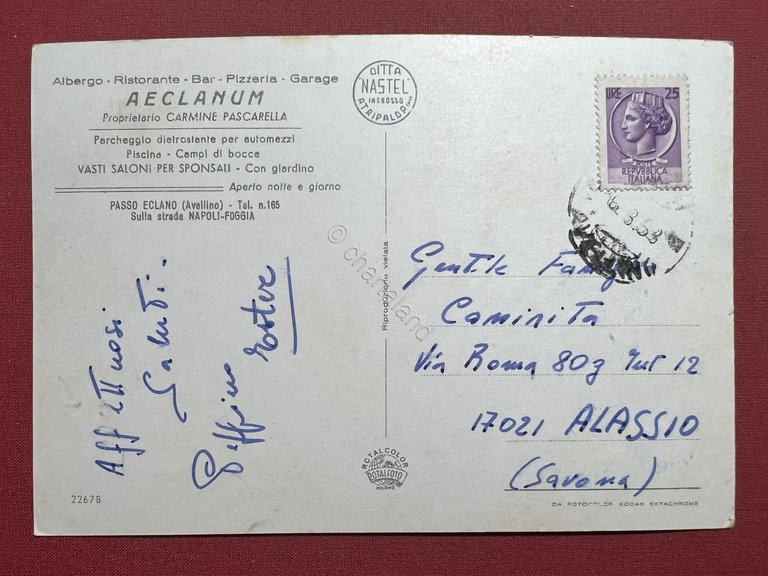 Albergo - Ristorante - Bar - Pizzeria - Garage
AECLANUM
Proprietario CARMINE PASCARELLA
Parcheggio dietrostante per automezzi
Piscina - Campi di bocce
VASTI SALONI PER SPONSALI - Con giardino
Aperto notte e giorno
PASSO ECLANO (Avellino) - Tel. n.165
Sulla strada NAPOLI-FOGGIA
DITTA
"NASTEL"
INGROSSO
ATRIPALDA
LIRE 25
POSTE
REPVBBLICA
ITALIANA
Affettuosi
Saluti..
Ester
Gentile
Caminita
Via Roma 80g Int 12
17021 ALASSIO
(Savona)
Riproduzione vietata
© chartaland
ROTALCOLOR
ROTALFOTO
MILANO
2267B
DA FOTOCOLOR KODAK EKTACHROME